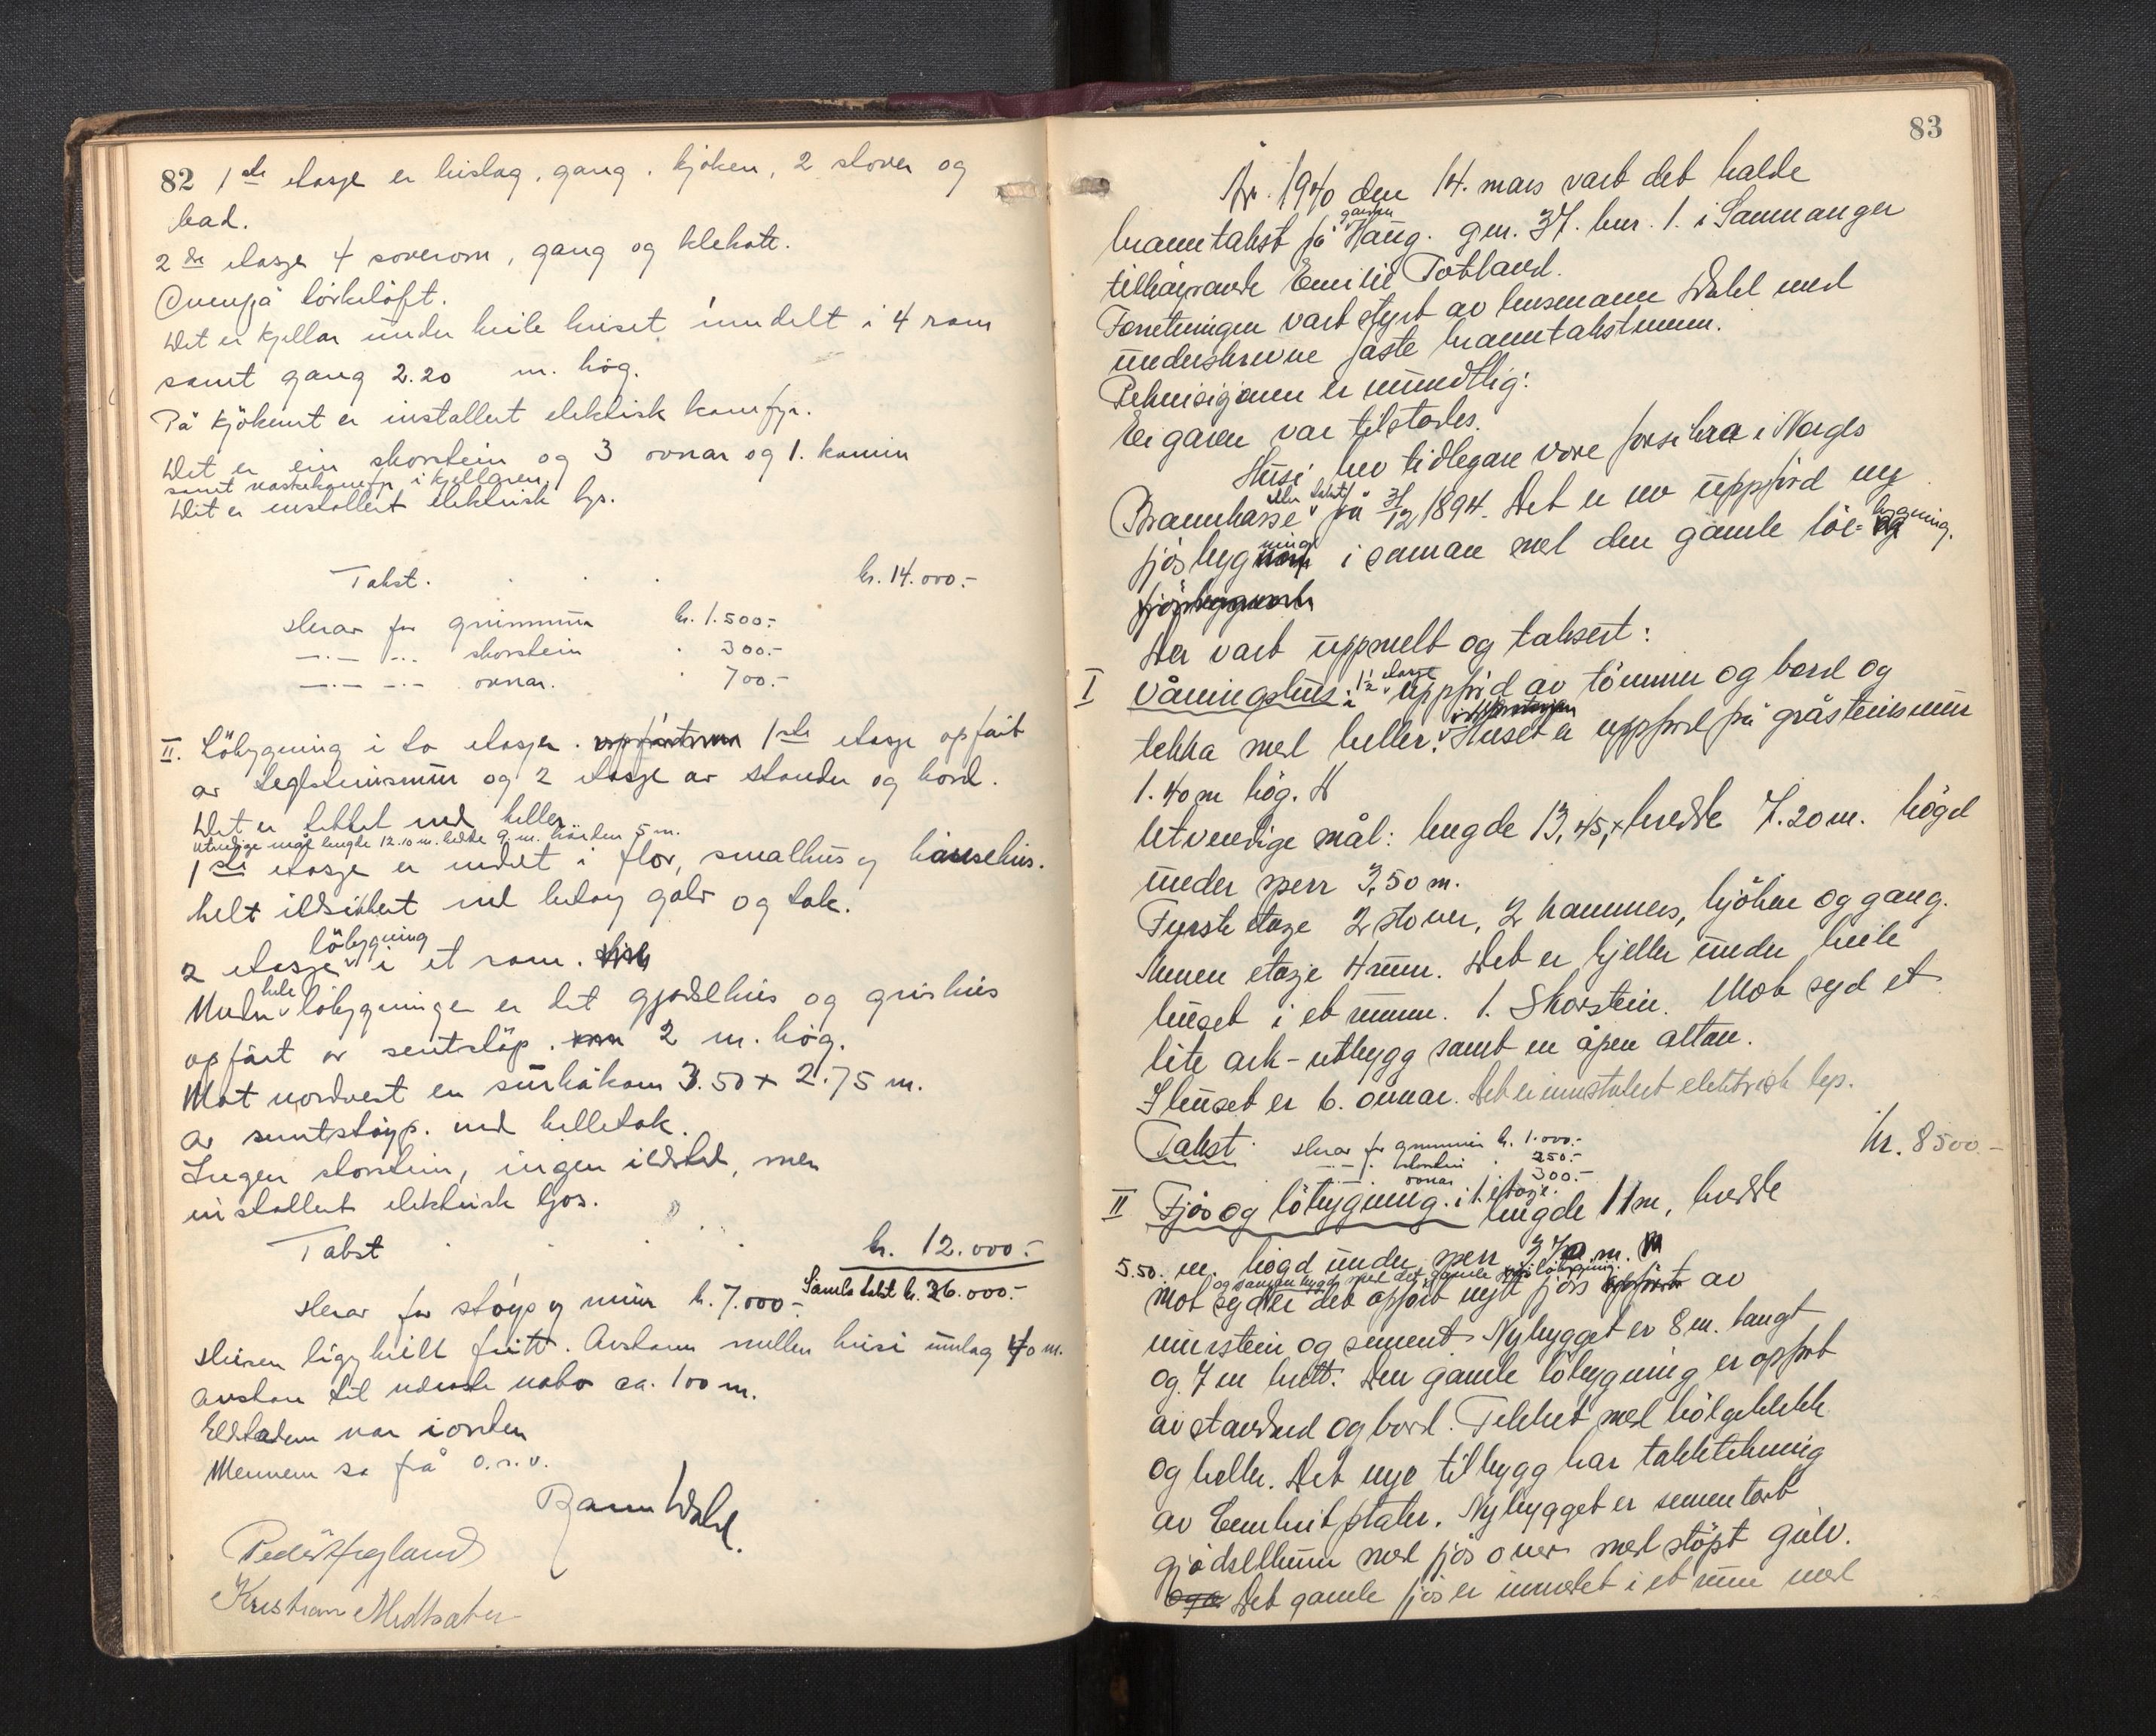 82 1ste etasje er bislag, gang, kjøken, 2 stover og
bad.
2dre etasje 4 soverom, gang og klekott.
Ovenpå törkelöft.
Det er kjellar under heile huset inndelt i 4 rom
samt gang 2.20 m. hög.
På kjökenet er installert elektrisk komfyr.
Det er ein skorstein og 3 ovnar og 1. kamin
samt vaskekomfyr i kjellaren.
Det er installert elektrisk lys.
Takst. kr. 14.000.-
Herav for grunnmur kr. 1.500.-
—.— —.— skorstein . 300.-
—.— —.— ovnar. . 700.-
II. Löbygning i to etasjer. 1ste etasje opfört
av teglsteinsmur og 2 etasje av stender og bord.
Det er tekket med heller.
Utvendige mål lengde 12.10 m. bredde 9. m. höiden 5 m.
1ste etasje er indret i flor, smalhus og hönsehus.
helt ildsikkert med betong golv og tak.
2 etasje löbygning i et rom.
Under hele löbygningen er det gjødselhus og grishus
opfört av sementstöp. 2 m. hög.
Mot nordvest en surhåkom 3.50 + 2.75 m.
av sementstöyp. med helletak.
Ingen skorstein, ingen ildsted, men
installert elektrisk ljos.
Takst kr. 12.000.-
Samla takst kr. 26.000.-
Herav for stöyp og mur kr. 7.000.-
Husen ligg heilt fritt. Avstann mellem husi innlag 40 m.
Avstan til næraste nabo ca. 100 m.
Eldstadene var i orden
Mennene sa frå o.s.v.
Dahl.
Peder
Kristian Midtsæter
83
År 1940 den 14. mars vart det halde
branntakst på garden Haug. gnr. 37. bnr. 1. i Samnanger
tilhøyrande Emilie Totland.
Forretningen vart styrt av lensmann Dahl med
underskrevne faste branntakstmenn.
Rekvisisjonen er mundtlig.
Eigaren var tilstades.
Husi hev tidlegare vore forsikra i Norges
Brannkasse etter takst på 31/12 1894. Det er no uppförd ny
fjösbygning i saman med den gamle löe-bygning.
Der vart uppmelt og taksert:
I Våningshus i 1½ etasje uppförd av tömmer og bord og
tekka med heller. Huset er uppförd på gråsteinsmur
1.40 m hög.
Utvendige mål: lengde 13,45, x bredde 7.20 m. högd
under sperr 3,50 m.
Fyrste etage 2 stover, 2 kammers, kjöken og gang.
Annen etasje 4 rum. Det er kjeller under heile
huset i et rumm. 1. Skorstein. Mot syd et
lite ark-utbygg samt en åpen altan.
I huset er 6. ovnar. Det er innstalert elektrisk lys.
Takst. kr. 8500.-
Herav for grunnmur kr. 1.000.-
—.— skorstein . 250.-
—.— ovnar . 300.-
II Fjös og löbygning. i 1. etasje. lengde 11 m, bredde
5.50. m. högd under sperr 3.70 m.
og sammenbygd med det gamle löbygning.
Mot syd er det opfört nytt fjös av
murstein og sement. Nybygget er 8 m. langt
og 7 m bredt. Den gamle löbygning er opfört
av stavbind og bord. Tekket med bölgeblekk
og heller. Det nye tilbygg har taktekning
av Eternit plater. Nybygget er sementert
gjödselkum med fjös over med stöpt gulv.
Det gamle fjös er innredet i et rum med